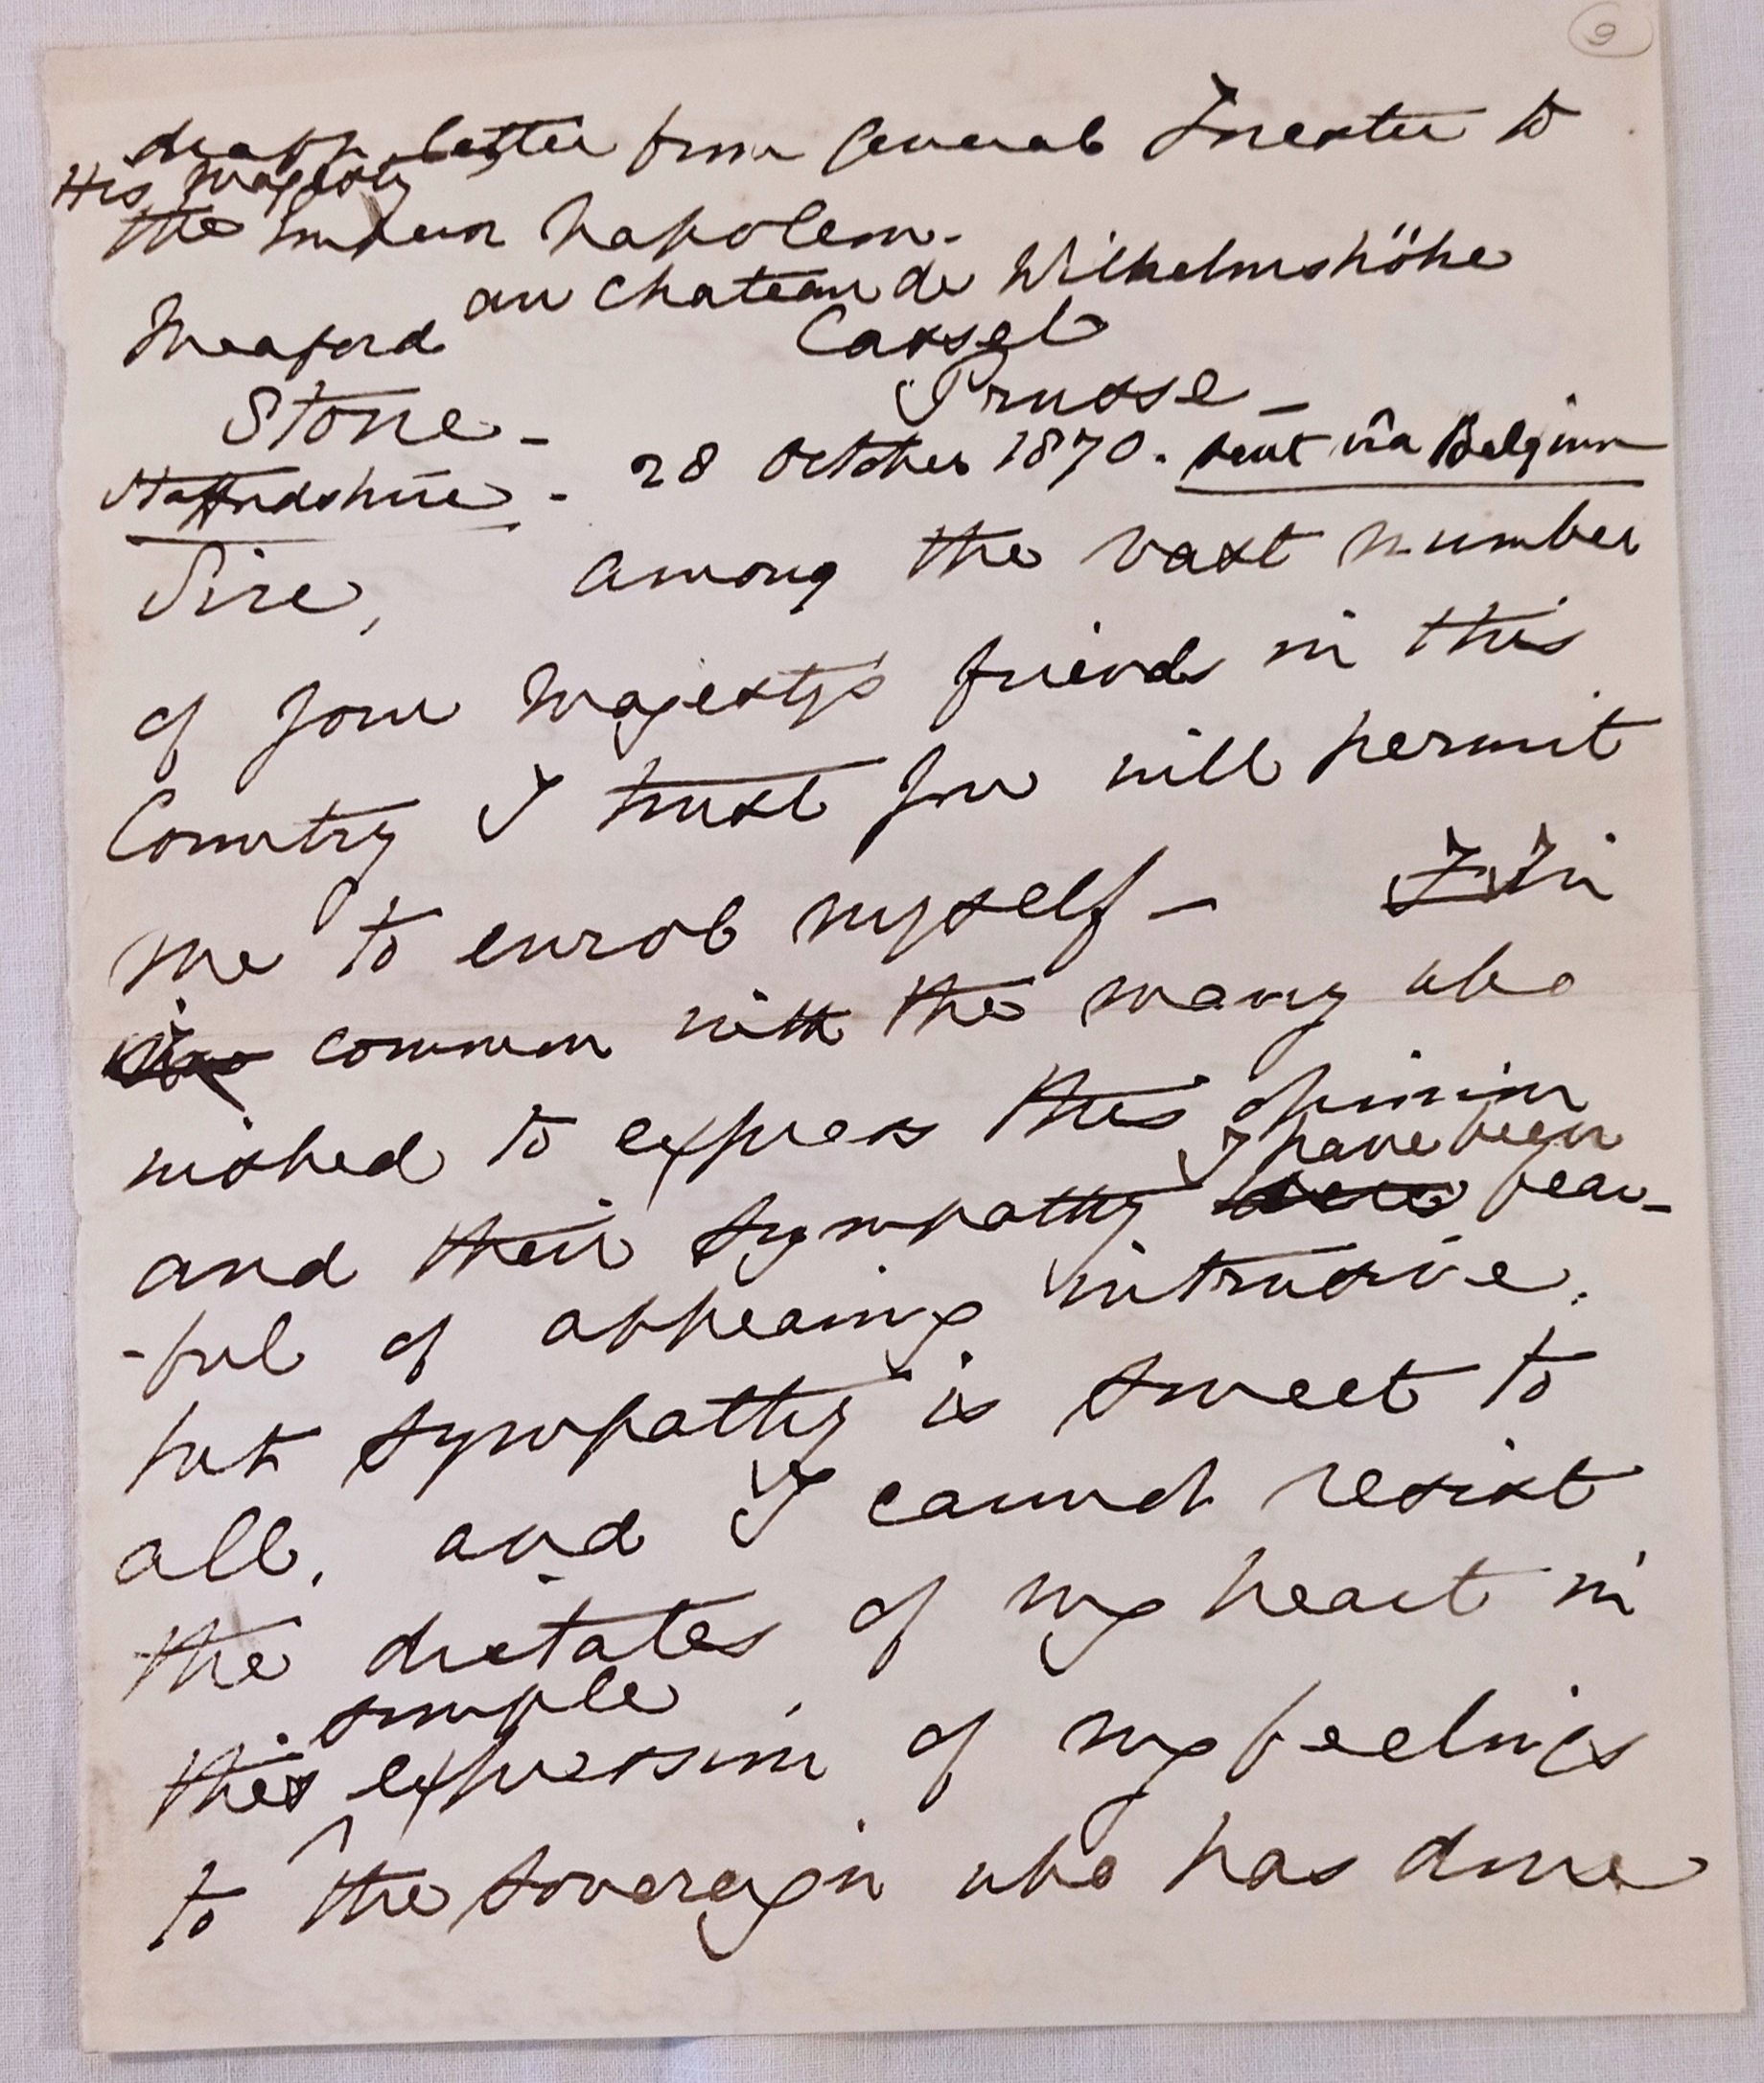 9
draft letter from General Forester to
His Majesty
the Emperor Napoleon.
au Chateau de Wilhelmshöhe
Meaford Cassel
Prusse -
Stone -
Staffordshire - 28 October 1870. sent via Belgium
Sire, among the vast number
of your Majesty's friends in this
Country I trust you will permit
me to enrol myself - In
common with the many who
wished to express this opinion
I have been
and their sympathy were fear-
-ful of appearing intrusive.
but sympathy is sweet to
all, and I cannot resist
the dictates of my heart in
simple
this expression of my feelings
to the Sovereign who has done